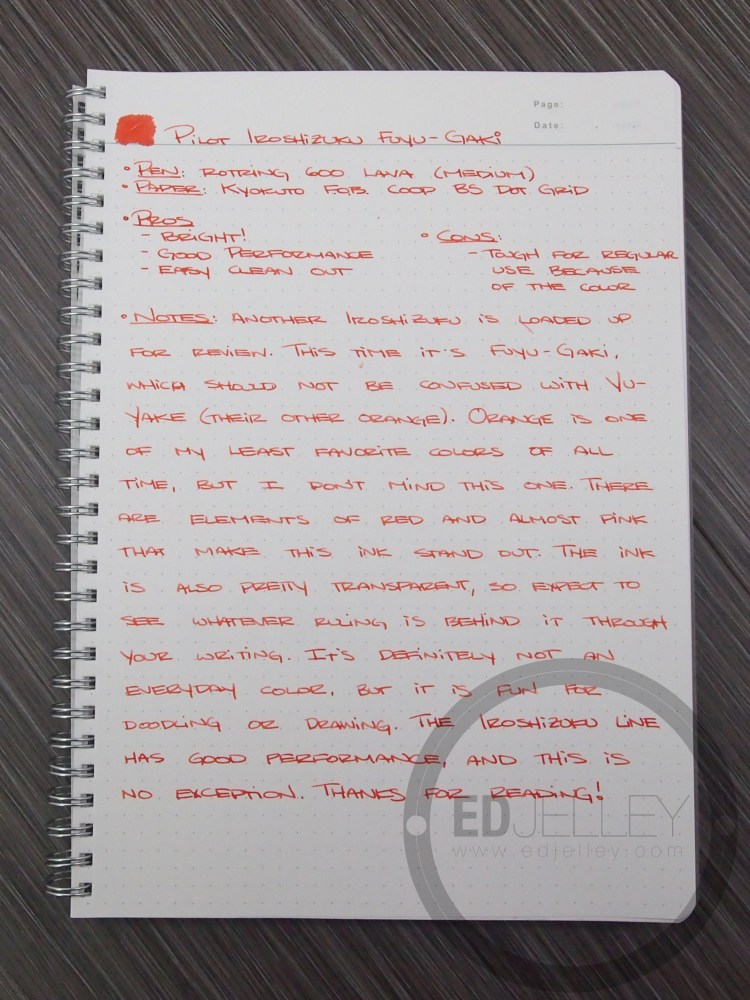 Page:
Date:
Pilot Iroshizuku Fuyu-Gaki
• Pen: Rotring 600 Lava (Medium)
• Paper: Kyokuto F.O.B. COOP B5 Dot Grid
• Pros
- Bright!
- Good Performance
- Easy Clean Out
• Cons:
- Tough for regular
use because
of the color
• Notes: Another Iroshizuku is loaded up
for review. This time it's Fuyu-Gaki,
which should not be confused with Yu-
Yake (their other orange). Orange is one
of my least favorite colors of all
time, but I don't mind this one. There
are elements of red and almost pink
that make this ink stand out. The ink
is also pretty transparent, so expect to
see whatever ruling is behind it through
your writing. It's definitely not an
everyday color, but it is fun for
doodling or drawing. The Iroshizuku line
has good performance, and this is
no exception. Thanks for reading!
EDJELLEY
www.edjelley.com